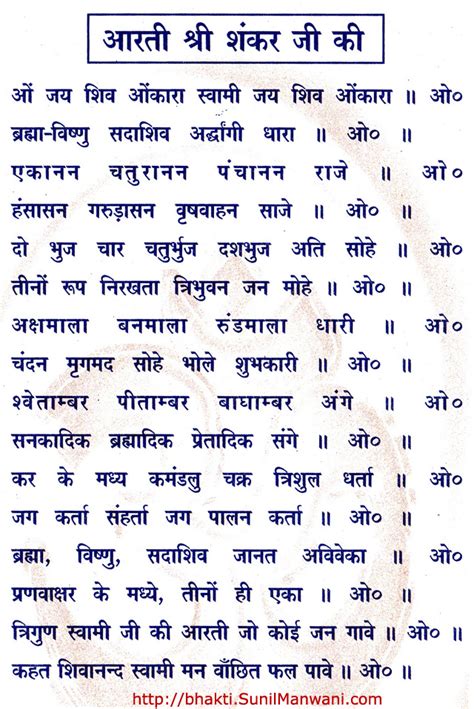 आरती श्री शंकर जी की
ओं जय शिव ओंकारा स्वामी जय शिव ओंकारा ॥ ओ०
ब्रह्मा-विष्णु सदाशिव अर्द्धांगी धारा ॥ ओ० ॥
एकानन चतुरानन पंचानन राजे ॥ ओ०
हंसासन गरुड़ासन वृषवाहन साजे ॥ ओ० ॥
दो भुज चार चतुर्भुज दशभुज अति सोहे ॥ ओ०
तीनों रूप निरखता त्रिभुवन जन मोहे ॥ ओ० ॥
अक्षमाला बनमाला रुंडमाला धारी ॥ ओ०
चंदन मृगमद सोहे भोले शुभकारी ॥ ओ० ॥
श्वेताम्बर पीताम्बर बाघाम्बर अंगे ॥ ओ०
सनकादिक ब्रह्मादिक प्रेतादिक संगे ॥ ओ० ॥
कर के मध्य कमंडलु चक्र त्रिशुल धर्ता ॥ ओ०
जग कर्ता संहर्ता जग पालन कर्ता ॥ ओ० ॥
ब्रह्मा, विष्णु, सदाशिव जानत अविवेका ॥ ओ०
प्रणवाक्षर के मध्ये, तीनों ही एका ॥ ओ० ॥
त्रिगुण स्वामी जी की आरती जो कोई जन गावे ॥ ओ०
कहत शिवानन्द स्वामी मन वाँछित फल पावे ॥ ओ० ॥
http://bhakti.SunilManwani.com